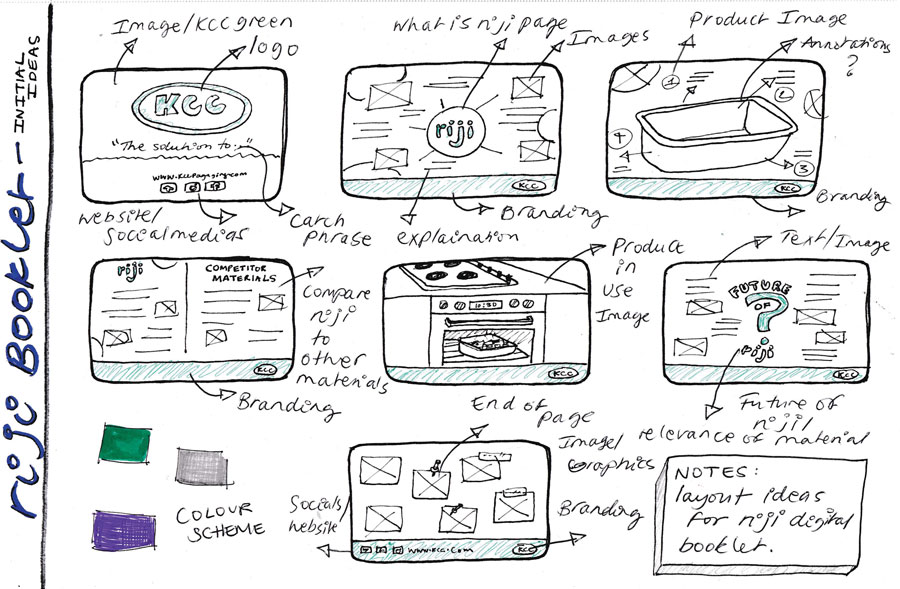 riji BOOKLET - INITIAL IDEAS
Image/KCC green
logo
KCC
"The solution to..."
website/
Social medias
Catch
phrase
What is riji page
Images
riji
KCC
Branding
explaination
Product Image
Annotations
?
1
2
3
4
KCC
Branding
riji
COMPETITOR
MATERIALS
KCC
Compare
riji
to
other
materials
Branding
10:30
KCC
Product
in
use
Image
Text/Image
FUTURE
OF
?
riji
KCC
Future of
riji/
relevance of material
End of
page
Image/
Graphics
Socials/
website
www.kcc.com
KCC
Branding
COLOUR
SCHEME
NOTES:
layout ideas
for riji digital
booklet.